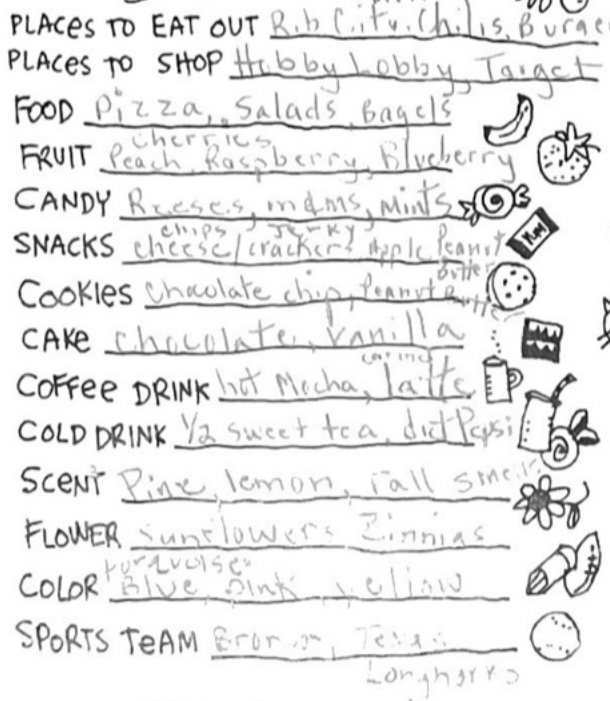 PLACES TO EAT OUT Rib City, Chilis, Burge
PLACES TO SHOP Hobby Lobby, Target
FOOD Pizza, Salads, Bagels
cherries
FRUIT Peach, Raspberry, Blueberry
CANDY Reeses, m&ms, Mints
chips, Jerky,
SNACKS cheese/crackers Apple Peanut
Butter
COOKIES Chocolate chip, Peanut Butter
CAKE chocolate, Vanilla
COFFEE DRINK hot Mocha, latte
COLD DRINK 1/2 sweet tea, diet Pepsi
SCENT Pine, lemon, Fall smells
FLOWER Sunflowers Zinnias
turquoise
COLOR Blue, pink, yellow
SPORTS TEAM Texas
Longhorns